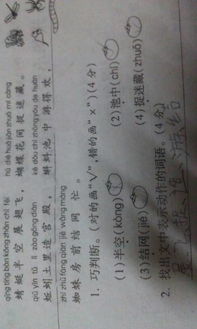 qīng tíng bàn kōng zhǎn chì fēi hú dié huā jiān zhuō mí cáng
蜻蜓半空展翅飞，蝴蝶花间捉迷藏。
qiū yǐn tǔ lǐ zào gōng diàn kē dǒu chí zhōng yóu de huān
蚯蚓土里造宫殿，蝌蚪池中游得欢。
zhī zhū fáng qián jié wǎng máng
蜘蛛房前结网忙。
1. 巧判断。(对的画“√”，错的画“×”)(4分)
(1)半空(kōng) (2)池中(chí)
(3)结网(jié) (4)捉迷藏(zhuō)
2. 找出文中表示动作的词语。(4分)
飞 捉 造 游 结